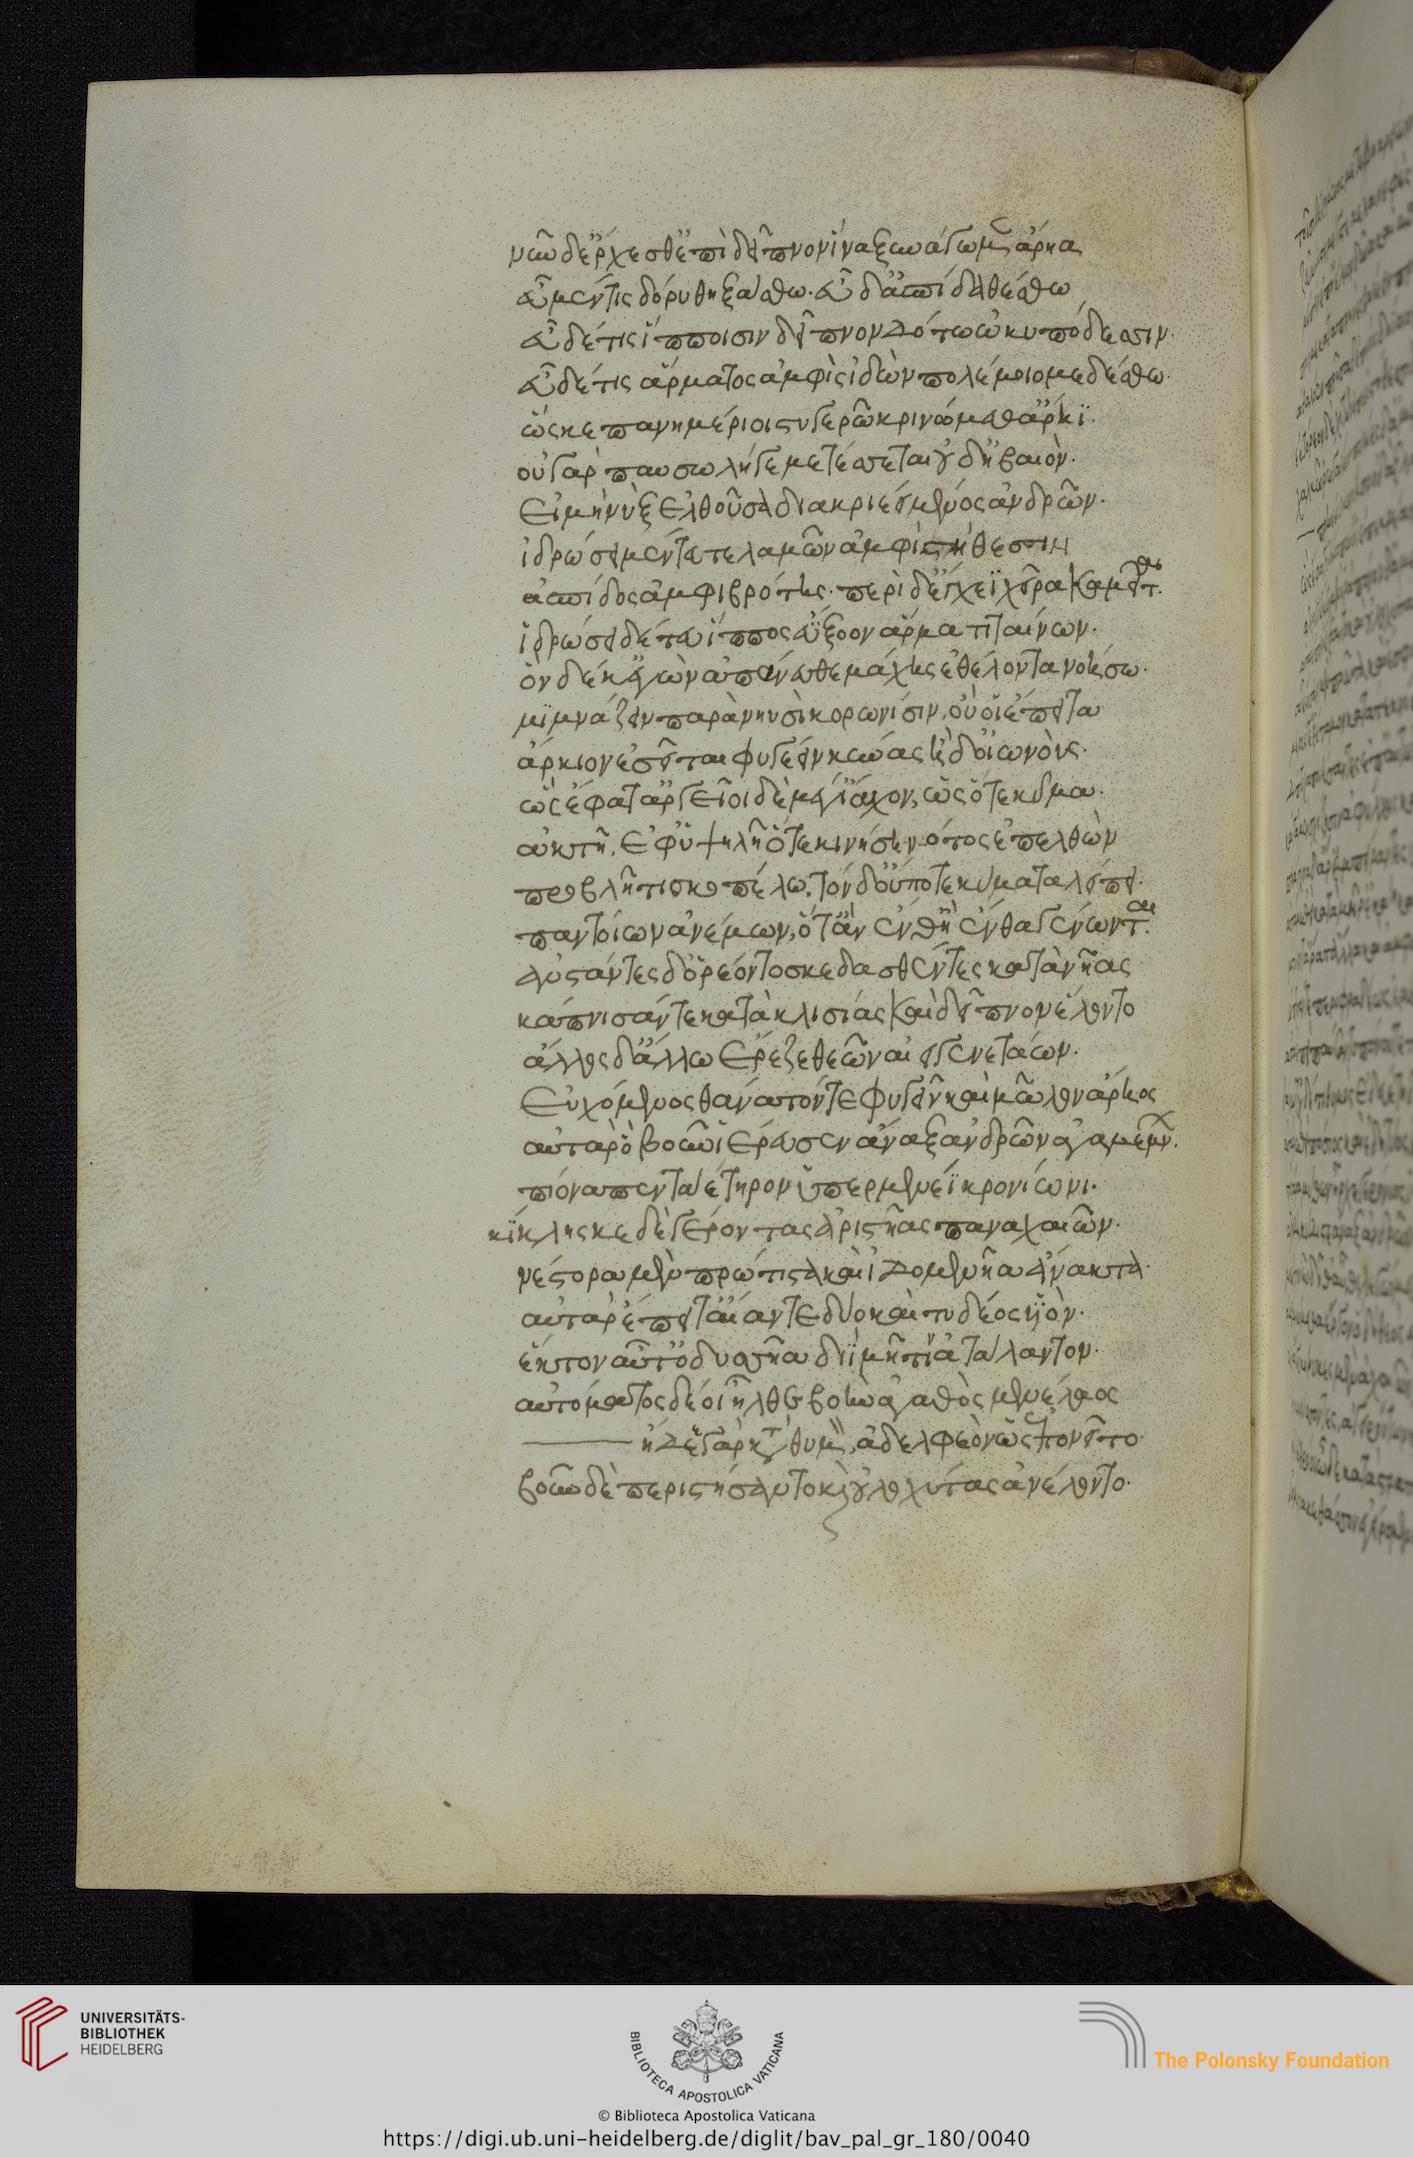 νῦν δ' ἔρχεσθ' ἐπὶ δεῖπνον ἵνα ξυνάγωμεν ἄρηα
εὖ μέν τις δόρυ θηξάσθω. εὖ δ' ἀσπίδα θέσθω
εὖ δέ τις ἵπποισιν δεῖπνον δότω ὠκυπόδεσσιν.
εὖ δέ τις ἅρματος ἀμφὶς ἰδὼν πολέμοιο μεδέσθω.
ὥς κε πανημέριοι στυγερῶ κρινώμεθ' ἄρηϊ.
οὐ γὰρ παυσωλήγε μετέσσεται οὐδ' ἠβαιόν.
εἰ μὴ νὺξ ἐλθοῦσα διακρινέει μένος ἀνδρῶν.
ἱδρώσει μέν τευ τελαμὼν ἀμφὶ στήθεσσιν
ἀσπίδος ἀμφιβρότης. περὶ δ' ἔγχεϊ χεῖρα καμεῖται.
ἱδρώσει δέ τευ ἵππος ἐΰξοον ἅρμα τιταίνων.
ὃν δέ κ' ἐγὼν ἀπάνευθε μάχης ἐθέλοντα νοήσω.
μιμνάζειν παρὰ νηυσὶ κορωνίσιν, οὔ οἱ ἔπειτα
ἄρκιον ἐσσεῖται φυγέειν κύνας ἠδ' οἰωνούς.
ὣς ἔφατ' ἀργεῖοι δὲ μέγ' ἴαχον, ὡς ὅτε κῦμα
ἀκτῆ ἐφ' ὑψηλῆ ὅτε κινήσει νότος ἐλθὼν
προβλῆτι σκοπέλω, τὸν δ' οὔποτε κύματα λείπει.
παντοίων ἀνέμων, ὅτ' ἂν ἔνθ' ἢ ἔνθα γένωνται.
ἀνστάντες δ' ὀρέοντο σκεδασθέντες κατὰ νῆας
κάπνισάν τε κατὰ κλισίας καὶ δεῖπνον ἕλοντο
ἄλλος δ' ἄλλω ἔρεζε θεῶν αἰειγενετάων.
εὐχόμενος θάνατόν τε φυγεῖν καὶ μῶλον ἄρηος
αὐτὰρ ὁ βοῦν ἱέρευσεν ἄναξ ἀνδρῶν ἀγαμέμνων.
πίονα πενταέτηρον ὑπερμενέϊ κρονίωνι.
κίκλησκε δὲ γέροντας ἀριστῆας παναχαιῶν.
νέστορα μὲν πρώτιστα καὶ ἰδομενῆα ἄνακτα.
αὐτὰρ ἔπειτ' αἴαντε δύο καὶ τυδέος υἱόν.
ἕκτον δ' αὖτ' ὀδυσῆα διῒ μῆτιν ἀτάλαντον.
αὐτόματος δέ οἱ ἦλθε βοὴν ἀγαθὸς μενέλαος
ᾔδεε γὰρ κατὰ θυμὸν ἀδελφεὸν ὡς ἐπονεῖτο.
βοῦν δὲ περιστήσαντο καὶ οὐλοχύτας ἀνέλοντο.
UNIVERSITÄTS-
BIBLIOTHEK
HEIDELBERG
BIBLIOTECA APOSTOLICA VATICANA
The Polonsky Foundation
© Biblioteca Apostolica Vaticana
https://digi.ub.uni-heidelberg.de/diglit/bav_pal_gr_180/0040